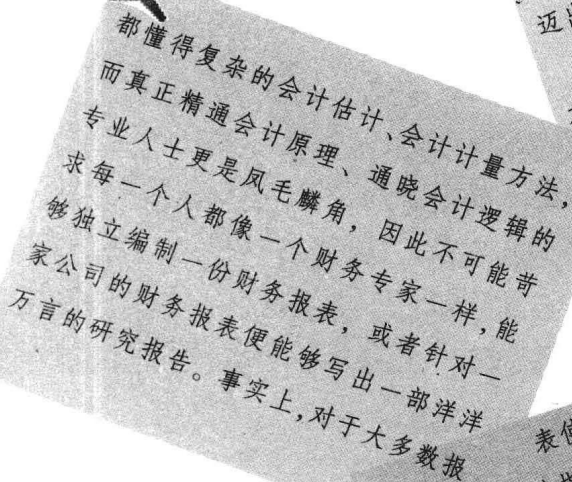 都懂得复杂的会计估计、会计计量方法，
而真正精通会计原理、通晓会计逻辑的
专业人士更是凤毛麟角，因此不可能苛
求每一个人都像一个财务专家一样，能
够独立编制一份财务报表，或者针对一
家公司的财务报表便能够写出一部洋洋
万言的研究报告。事实上，对于大多数报
迈
表